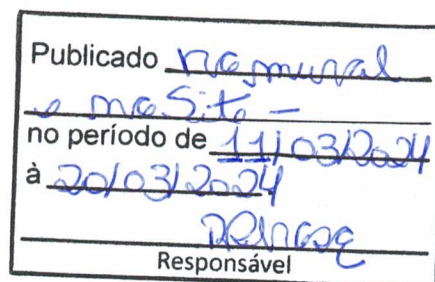 Publicado no mural
e no Site -
no período de 11/03/2024
à 20/03/2024
Responsável